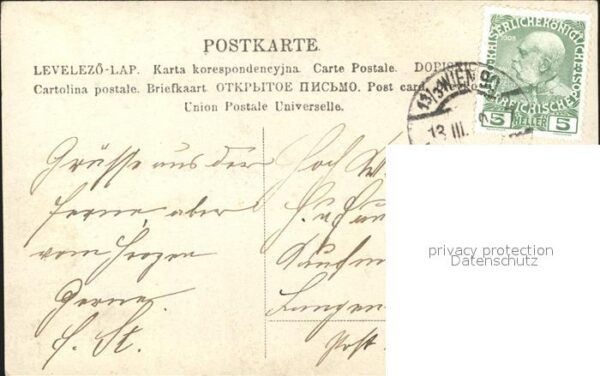 POSTKARTE.
LEVELEZŐ-LAP. Karta korespondencyjna. Carte Postale. DOPISNIC
Cartolina postale. Briefkaart ОТКРЫТОЕ ПИСЬМО. Post card.
Union Postale Universelle.
KAISERLICHE KÖNIGLICHE
1908
POST
ÖSTERREICHISCHE
5 HELLER 5
13/3 WIEN
13 III.
Grüsse aus der
ferne, aber
vom Herzen
Gerne.
St.
Hoch
Kaufm
Langen
Post
privacy protection
Datenschutz